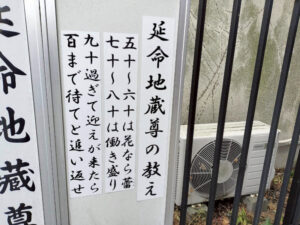 延命地蔵尊の教え
五十〜六十は花なら蕾
七十〜八十は働き盛り
九十過ぎて迎えが来たら
百まで待てと追い返せ
延命地蔵尊